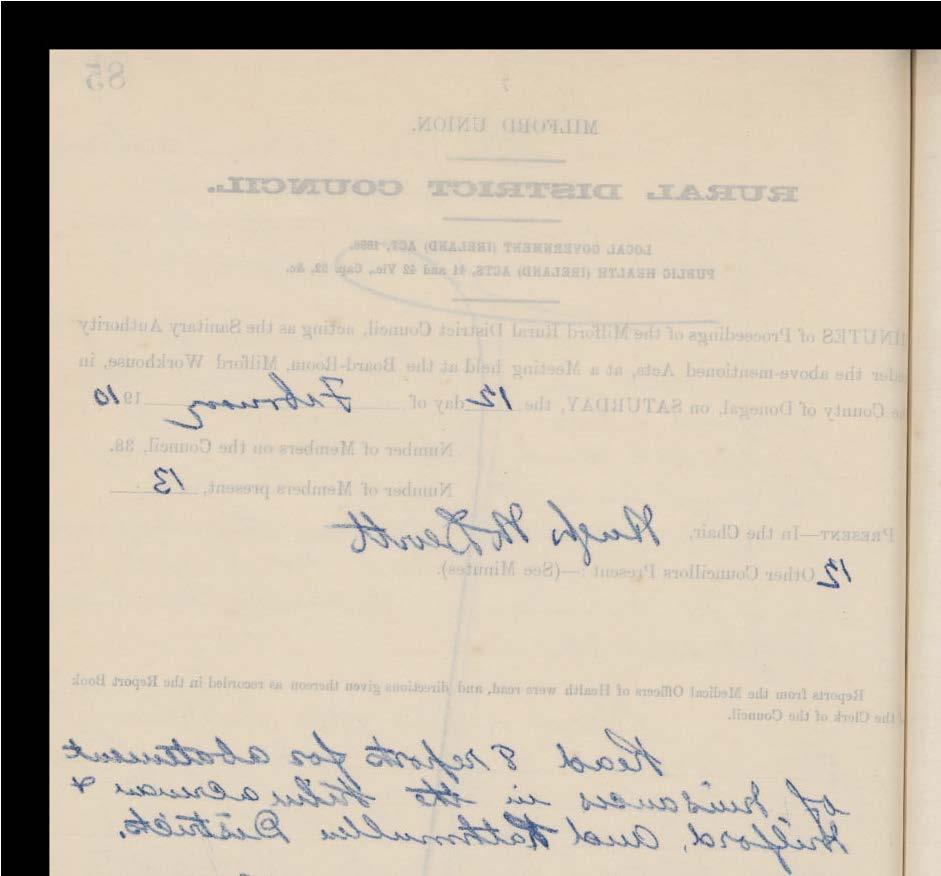 7 85
MILFORD UNION.
RURAL DISTRICT COUNCIL.
LOCAL GOVERNMENT (IRELAND) ACT, 1898.
PUBLIC HEALTH (IRELAND) ACTS, 41 and 42 Vic., Cap. 52, &c.
INUTES of Proceedings of the Milford Rural District Council, acting as the Sanitary Authority
der the above-mentioned Acts, at a Meeting held at the Board-Room, Milford Workhouse, in
e County of Donegal, on SATURDAY, the 12 day of February 1910
Number of Members on the Council, 38.
Number of Members present, 13
PRESENT—In the Chair, Hugh McDevitt
12 Other Councillors Present :—(See Minutes).
Reports from the Medical Officers of Health were read, and directions given thereon as recorded in the Report Book
the Clerk of the Council.
Read 8 reports for abatement
of nuisances in the Kilmacrenan &
Milford, and Rathmullen Districts.